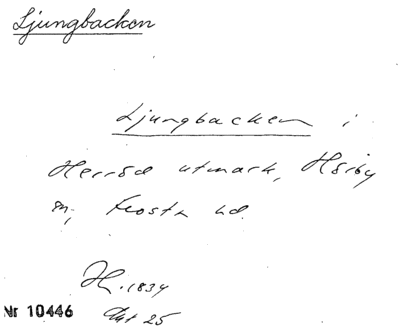 Ljungbacken
Ljungbacken i
Herröd utmark, Hörby
sn, Frosta hd.
H. 1834
Akt 25
Nr 10446